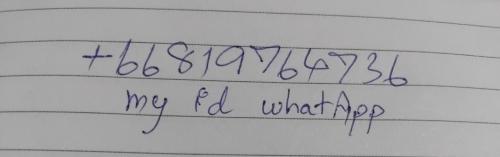 +66819764736
my id whatApp